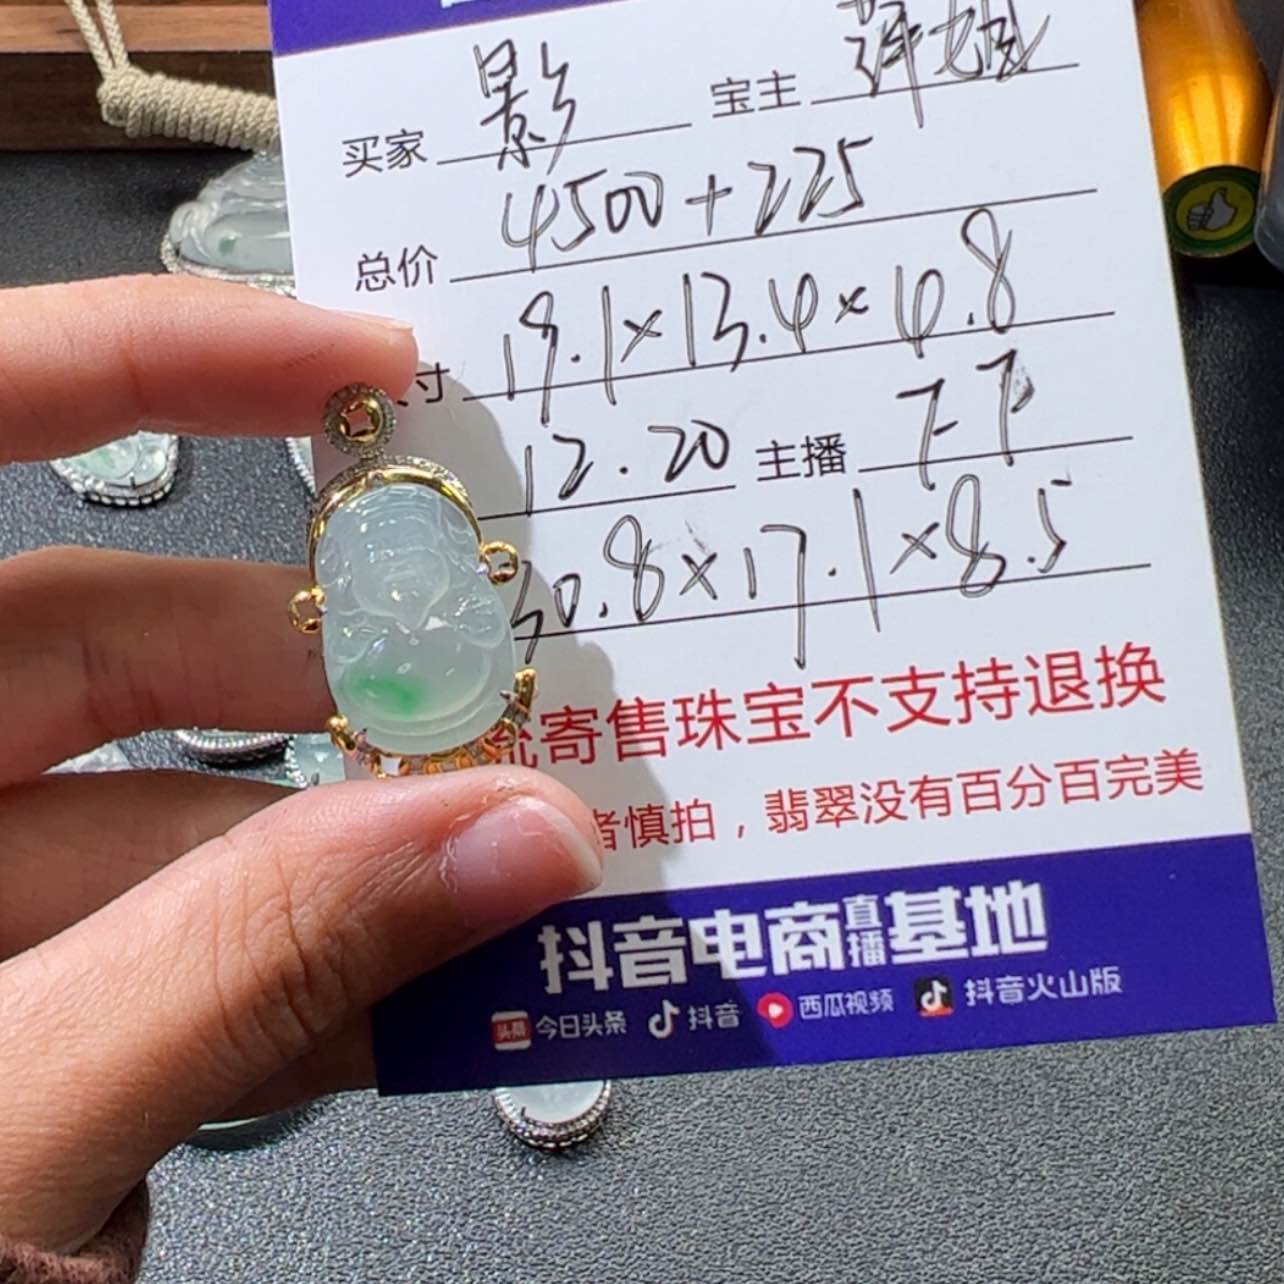 买家 影 宝主 薛大姐
总价 4500+225
寸 19.1×13.4×6.8
12.20 主播
30.8×17.1×8.5
寄售珠宝不支持退换
者慎拍，翡翠没有百分百完美
抖音电商直播基地
头条 今日头条 抖音 西瓜视频 抖音火山版